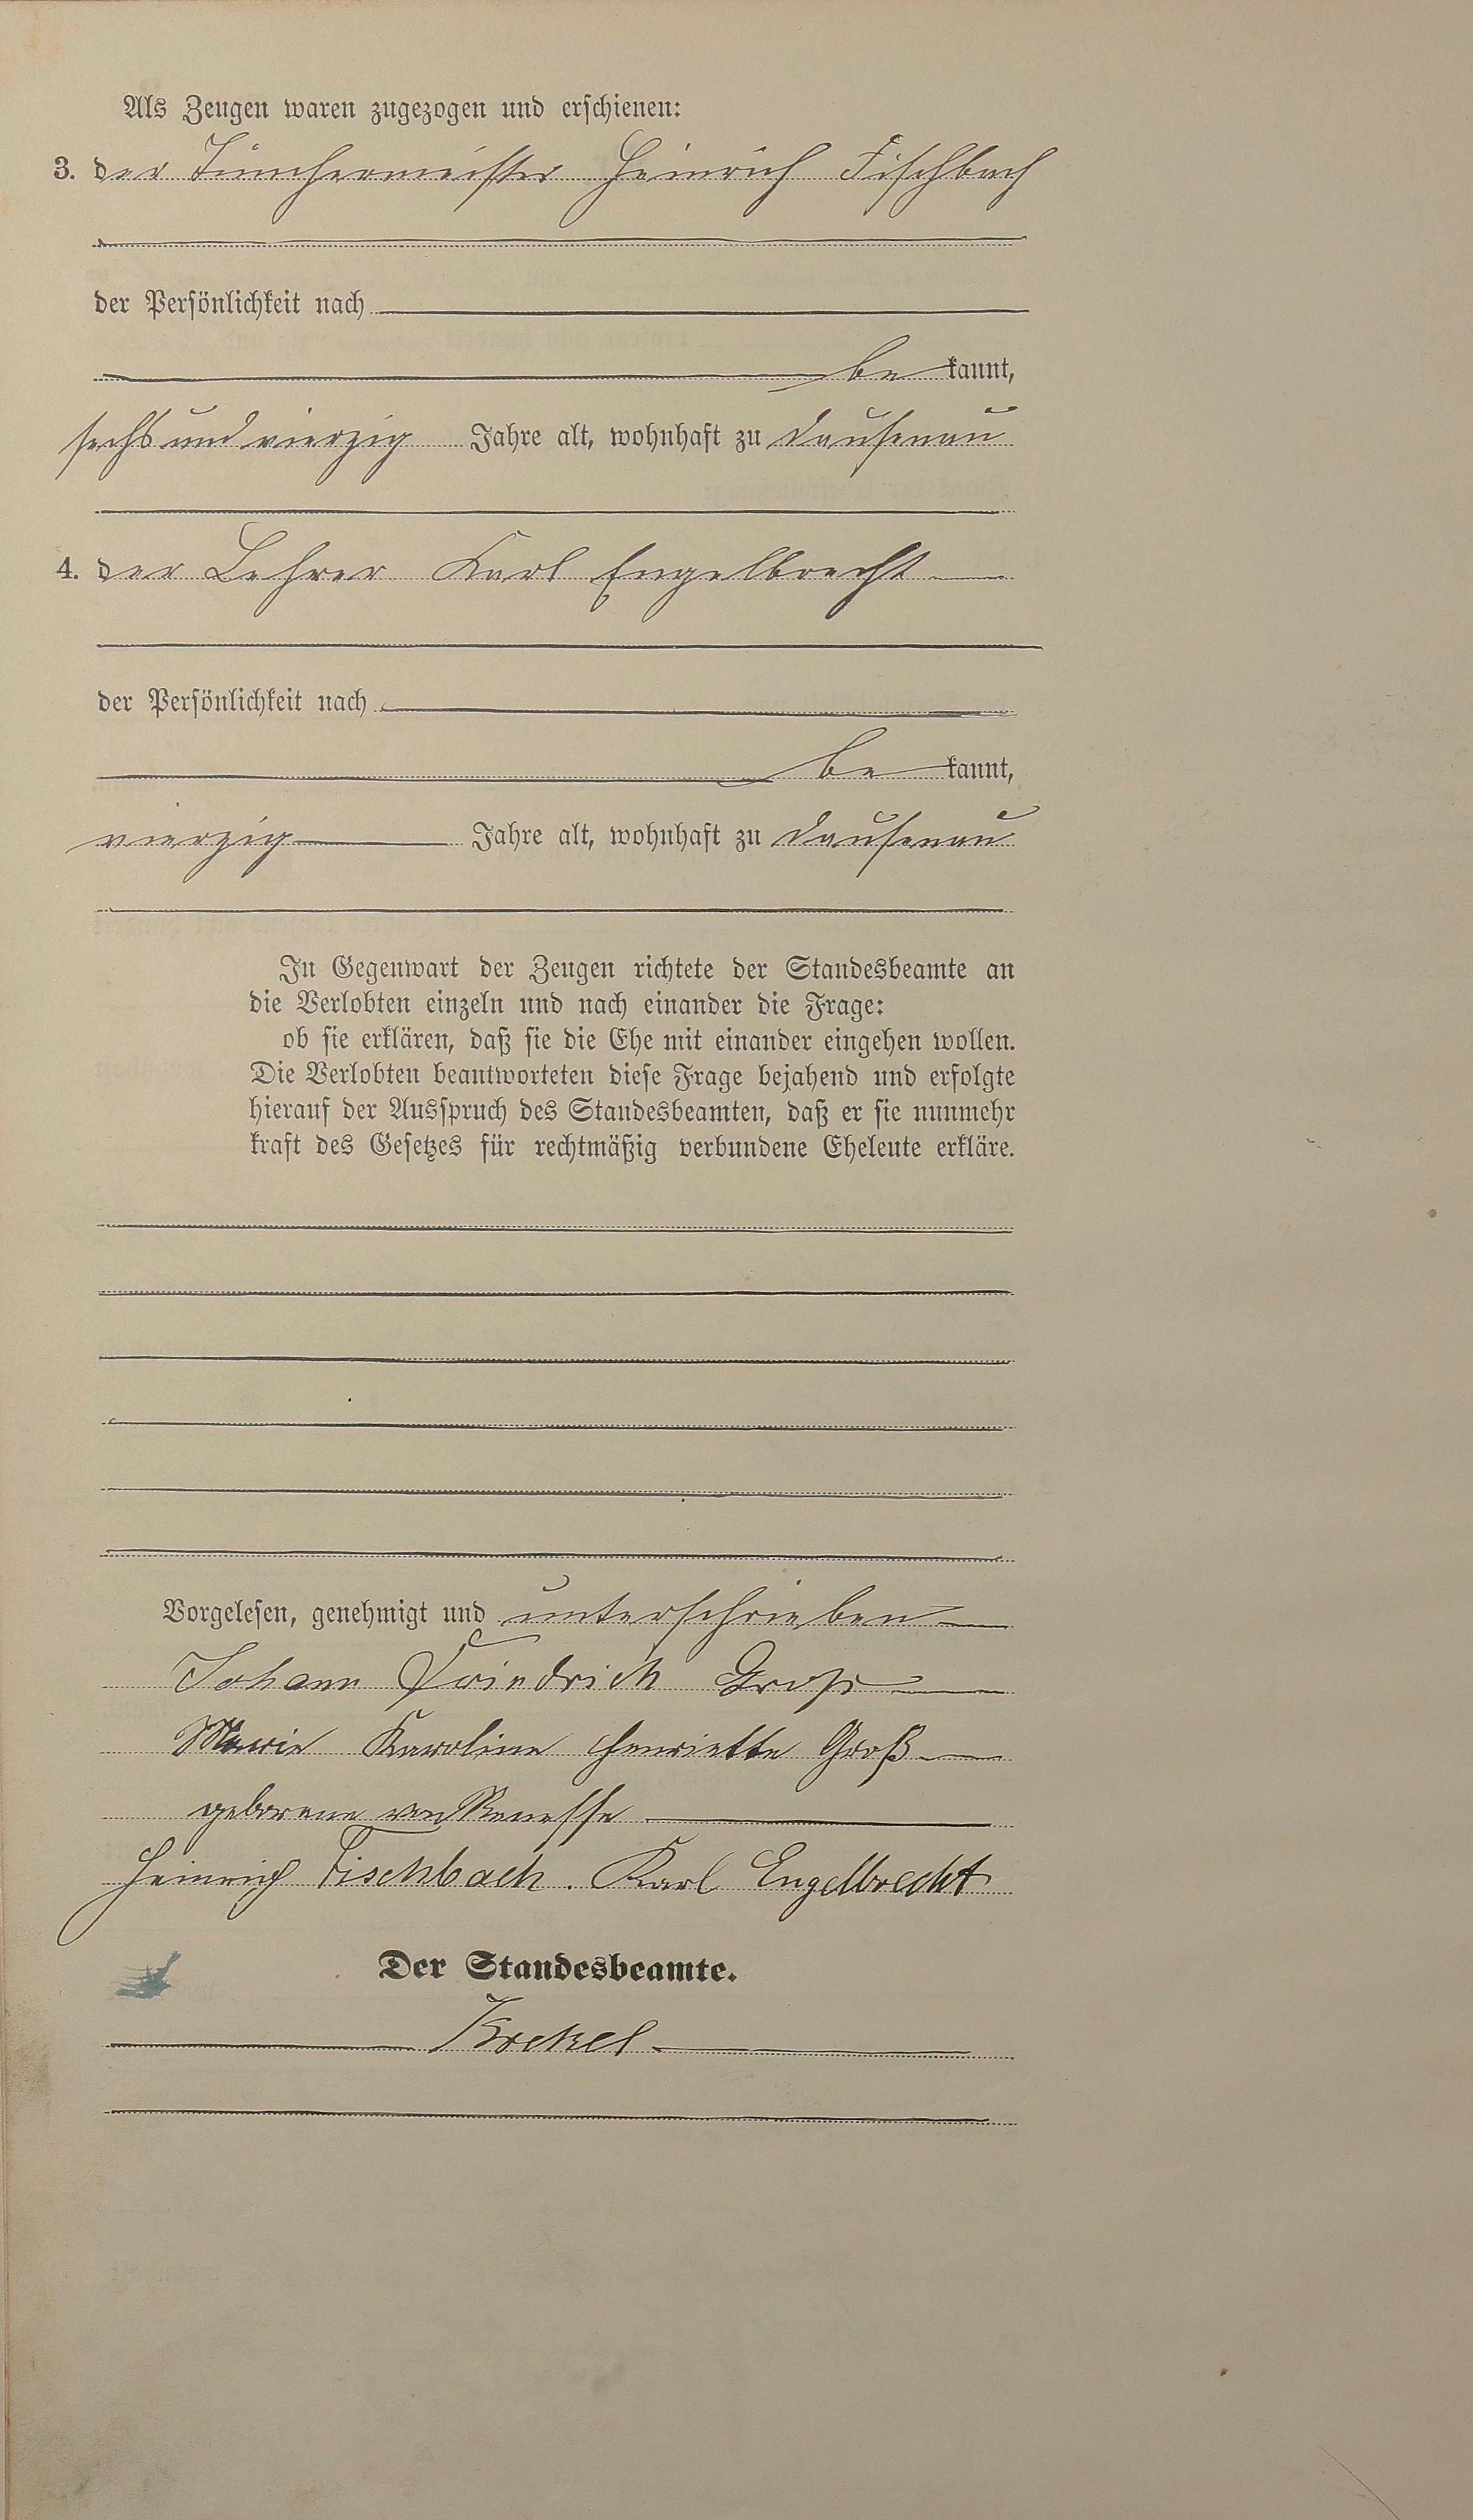 Als Zeugen waren zugezogen und erschienen:
3. der Tünchermeister Heinrich Fischbach
der Persönlichkeit nach
be kannt,
sechs und vierzig Jahre alt, wohnhaft zu Dausenau
4. der Lehrer Karl Engelbrecht
der Persönlichkeit nach
be kannt,
vierzig Jahre alt, wohnhaft zu Dausenau
In Gegenwart der Zeugen richtete der Standesbeamte an
die Verlobten einzeln und nach einander die Frage:
ob sie erklären, daß sie die Ehe mit einander eingehen wollen.
Die Verlobten beantworteten diese Frage bejahend und erfolgte
hierauf der Ausspruch des Standesbeamten, daß er sie nunmehr
kraft des Gesetzes für rechtmäßig verbundene Eheleute erkläre.
Vorgelesen, genehmigt und unterschrieben
Johann Friedrich Groß
Marie Karoline Henriette Groß
geborene von Renesse
Heinrich Fischbach. Karl Engelbrecht
Der Standesbeamte.